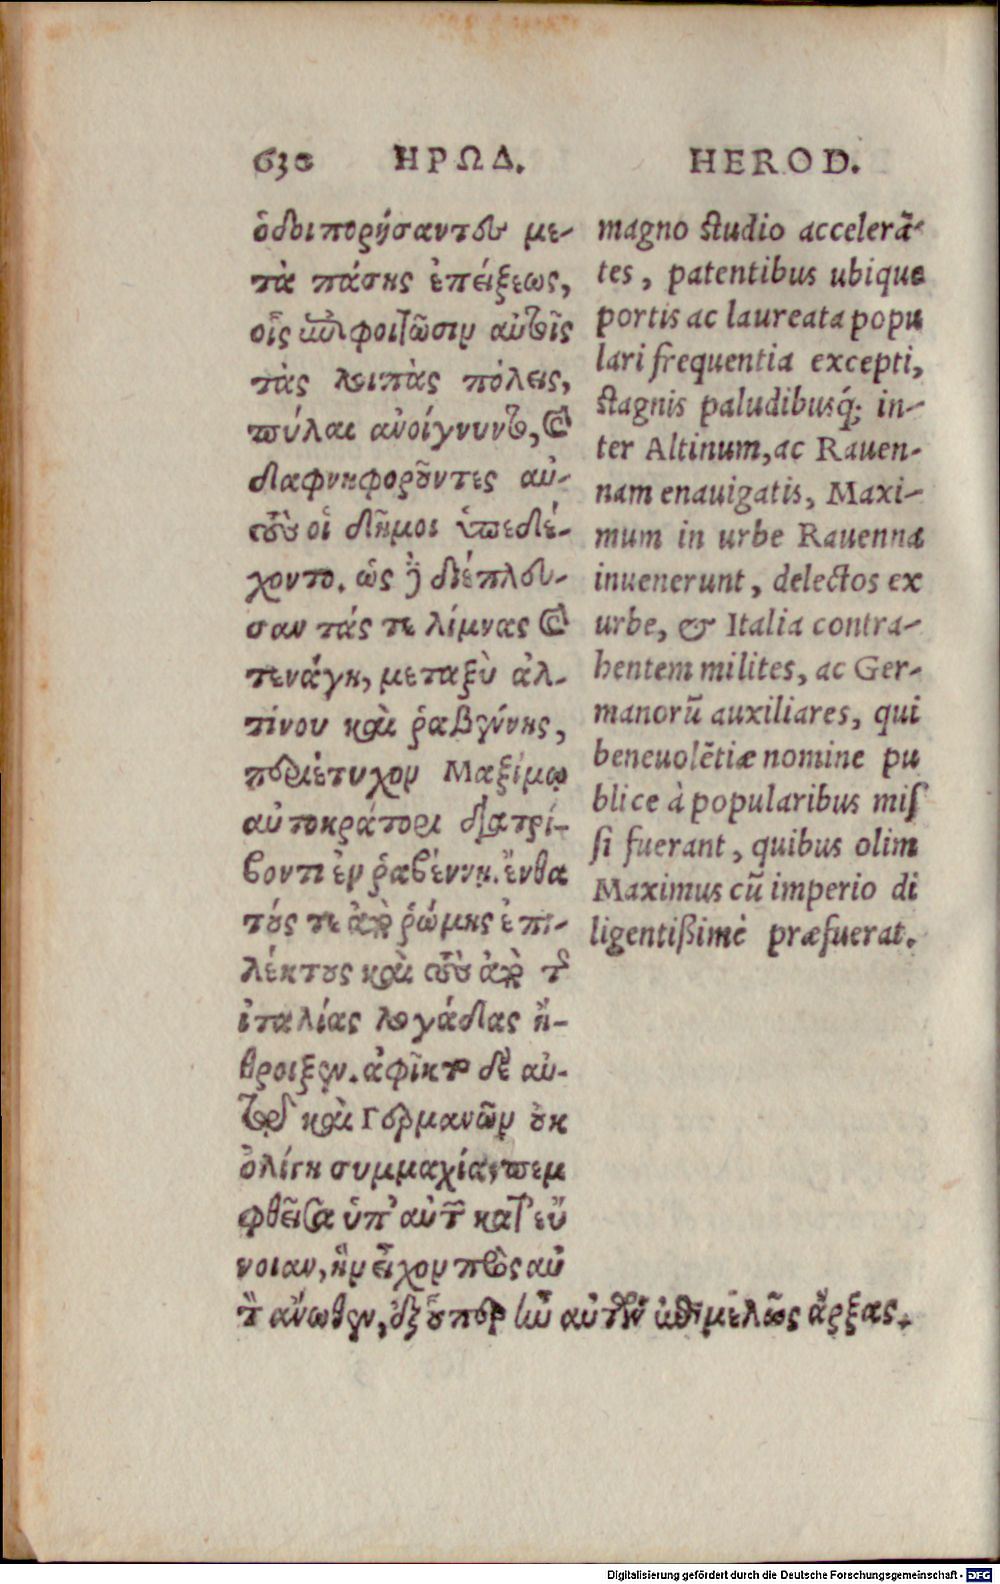 630 ΗΡΩΔ.
ὁδοιπορήσαντες με-
τὰ πάσης ἐπείξεως,
οἷς ἐπιφοιτῶσιν αὐτοῖς
τὰς λοιπὰς πόλεις,
πύλαι ἀνοίγνυντο, καὶ
δαφνηφοροῦντες αὐ-
τοὺς οἱ δῆμοι ὑπεδέ-
χοντο. ὡς δὲ διέπλευ-
σαν τάς τε λίμνας καὶ
τενάγη, μεταξὺ ἀλ-
τίνου καὶ ῥαβέννης,
περιέτυχον Μαξίμῳ
αὐτοκράτορι διατρί-
βοντι ἐν ῥαβέννῃ. ἔνθα
τούς τε ἀπὸ ῥώμης ἐπι-
λέκτους καὶ τοὺς ἀπὸ τῆς
ἰταλίας λογάδας ἤ-
θροιζεν. ἀφῖκτο δὲ αὐ-
τῷ καὶ Γερμανῶν οὐκ
ὀλίγη συμμαχία, πεμ
φθεῖσα ὑπ' αὐτῶν κατ' εὔ
νοιαν, ἣν εἶχον πρὸς αὐ
τὸν ἄνωθεν, ἐξ οὗπερ ἦν αὐτῶν ἐπιμελῶς ἄρξας.
HEROD.
magno studio accelerã-
tes, patentibus ubique
portis ac laureata popu
lari frequentia excepti,
stagnis paludibusq́; in-
ter Altinum, ac Rauen-
nam enauigatis, Maxi-
mum in urbe Rauenna
inuenerunt, delectos ex
urbe, & Italia contra-
hentem milites, ac Ger-
manorũ auxiliares, qui
beneuolẽtiæ nomine pu
blice à popularibus mis
si fuerant, quibus olim
Maximus cũ imperio di
ligentißimè præfuerat.
Digitalisierung gefördert durch die Deutsche Forschungsgemeinschaft - DFG